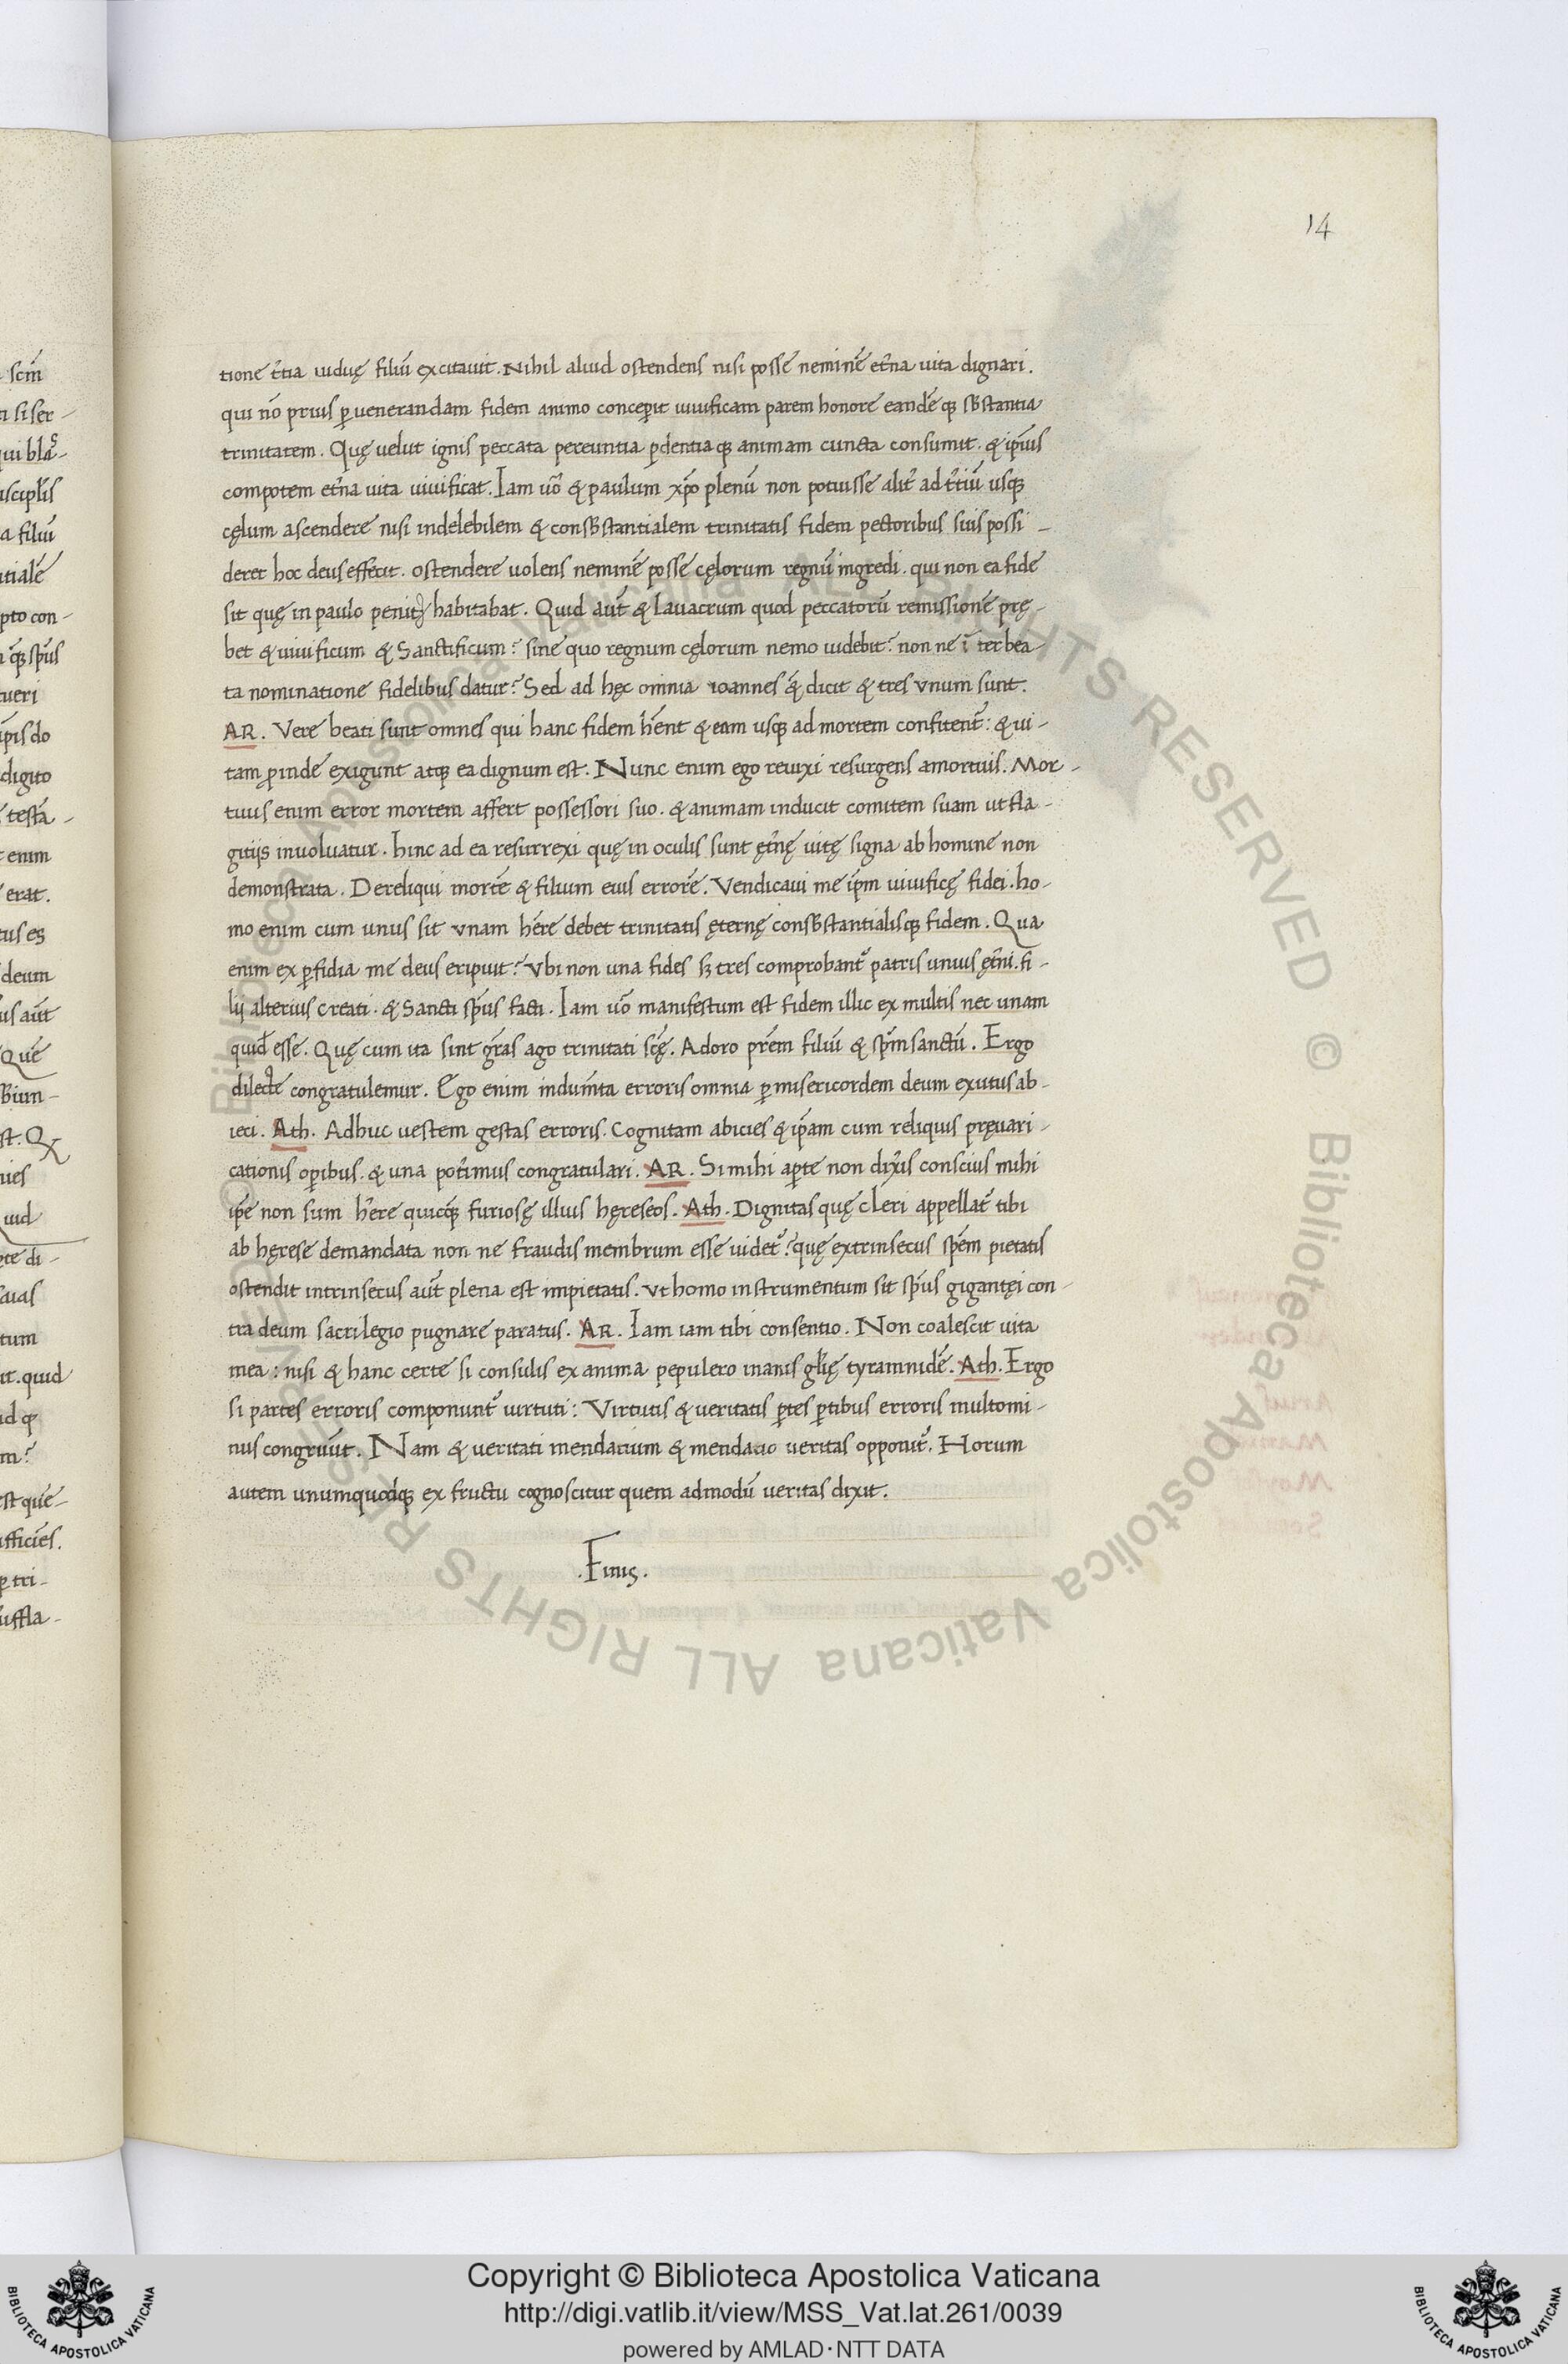 14
tione t̄tia uiduę filiū excitauit. Nihil aliud ostendens nisi posse neminē et̄na uita dignari.
qui nō prius p̱ uenerandam fidem animo conceperit uiuificam parem honore eandē q̨ sb̄stantia
trinitatem. Quę uelut ignis peccata pereuntia p̱dentia q̨ animam cuncta consumit. & ip̄ius
compotem et̄na uita uiuificat. Iam uō & paulum xp̄o plenū non potuisse alit̄ ad t̄tiū usq̨
cęlum ascendere nisi indelebilem & consb̄stantialem trinitatis fidem pectoribus suis possi-
deret hoc deus effecit. ostendere uolens neminē posse cęlorum regnū ingredi. qui non ea fide
sit quę in paulo penit᾽ habitabat. Quid aūt & Lauacrum quod peccatorū remissionē prę-
bet & uiuificum & Sanctificum? sine quo regnum cęlorum nemo uidebit? non ne ī ter bea-
ta nominatione fidelibus datur? Sed ad hęc omnia ioannes q̄ dicit & tres vnum sunt.
AR. Vere beati sunt omnes qui hanc fidem hēnt & eam usq̨ ad mortem confitent᷑: & ui-
tam p̱inde exigunt atq̨ ea dignum est. Nunc enim ego reuixi resurgens amortuis. Mor-
tuus enim error mortem affert possessori suo. & animam inducit comitem suam ut fla-
gitijs inuoluatur. hinc ad ea resurrexi quę in oculis sunt ęt̄nę uitę signa ab homine non
demonstrata. Dereliqui mortē & filium eius errorē. Vendicaui me ip̄m uiuificę fidei. ho-
mo enim cum unus sit vnam hēre debet trinitatis ęternę consb̄stantialisq̨ fidem. Qua
enim ex p̱fidia me deus eripuit? Vbi non una fides sꝫ tres comprobant᷑ patris unius ęt̄ni. fi-
lij alterius creati. & Sancti sp̄us facti. Iam uō manifestum est fidem illic ex multis nec unam
quid̄ esse. Quę cum ita sint gr̄as ago trinitati scę̄. Adoro pr̄em filiū & sp̄m sanctū. Ergo
dilecte congratulemur. Ego enim indum̄ta erroris omnia p̱ misericordem deum exutus ab-
ieci. Ath. Adhuc uestem gestas erroris. Cognitam abicies & ip̄am cum reliquis pręuari-
cationis op̱ibus. & una pot̄imus congratulari. AR. Si mihi ap̱te non dix̄is conscius mihi
ip̄e non sum hēre quicq̨̄ furiosę illius hęreseos. Ath. Dignitas quę cleri appellat᷑ tibi
ab hęrese demandata non ne fraudis membrum esse uidet᷑? quę extrinsecus sp̄em pietatis
ostendit intrinsecus aūt plena est impietatis. Vt homo instrumentum sit sp̄us gigantęi con-
tra deum sacrilegio pugnare paratus. AR. Iam iam tibi consentio. Non coalescit uita
mea: nisi & hanc certe si consulis ex anima pepulero inanis gl̄ię tyramnidē. Ath. Ergo
si partes erroris componunt᷑ uirtuti: Virtutis & veritatis p̱tes p̱tibus erroris multomi-
nus congruūt. Nam & veritati mendacium & mendacio veritas opponit᷑. Horum
autem unumquodq̨ ex fructu cognoscitur quem admodū veritas dixit.
.Finis.
Copyright © Biblioteca Apostolica Vaticana
http://digi.vatlib.it/view/MSS_Vat.lat.261/0039
powered by AMLAD·NTT DATA